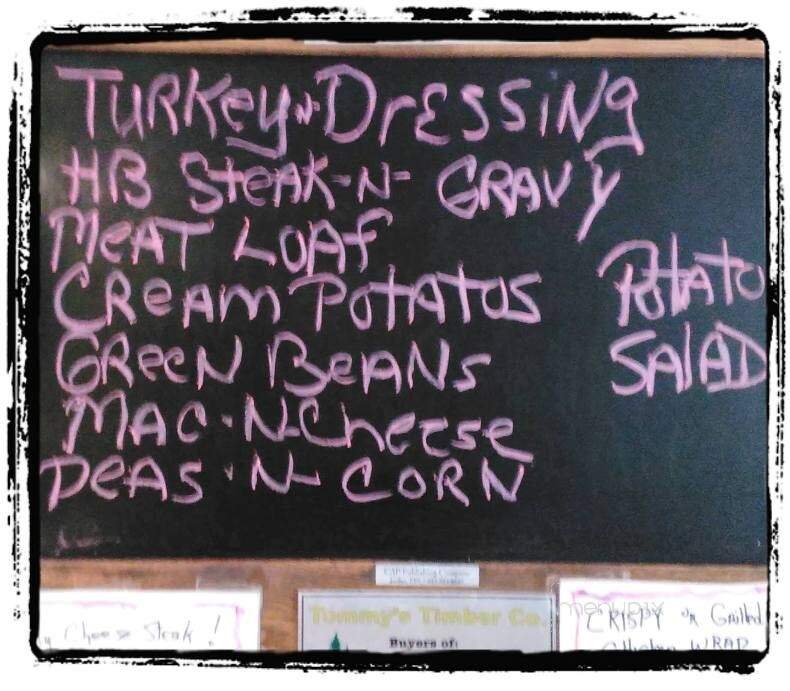 TURKey-N-DrESSiNg
HB SteAK-N- GRAVY
MeAT LOAf
CReam PotAtOS
GReeN BeANs
MAC-N-Cheese
PeAS-N-CORN
PotAto
SAlAD
Cheese Steak!
Tommy's Timber Co.
Buyers of:
menupix
CRISPY or Grilled
Chicken WRAP